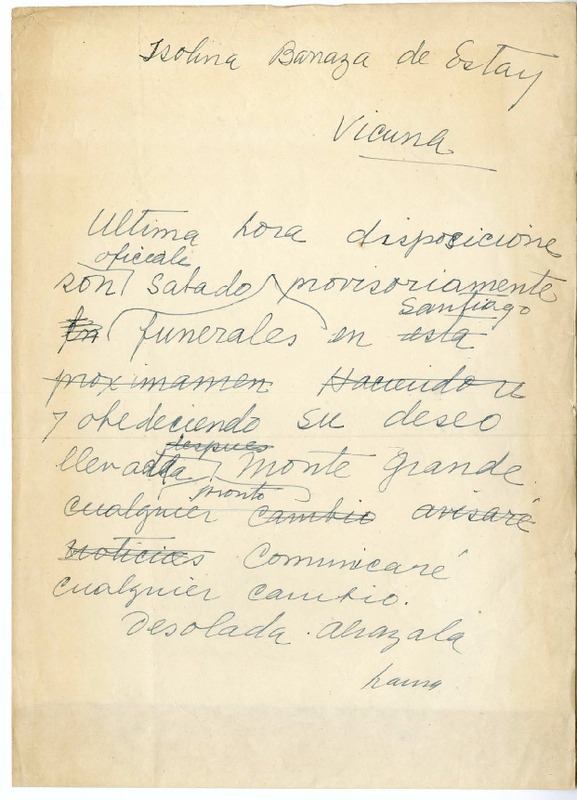 Isolina Baraza de Estay
Vicuna
Ultima hora disposicione
oficiale
son Sabado provisoriamente
Santiago
En funerales en esta
proximamen Haciendo
y obedeciendo su deseo
despues
llevada Monte Grande
pronto
cualquier cambio avisaré
noticias comunicaré
cualquier cambio.
Desolada abrazala
Laura